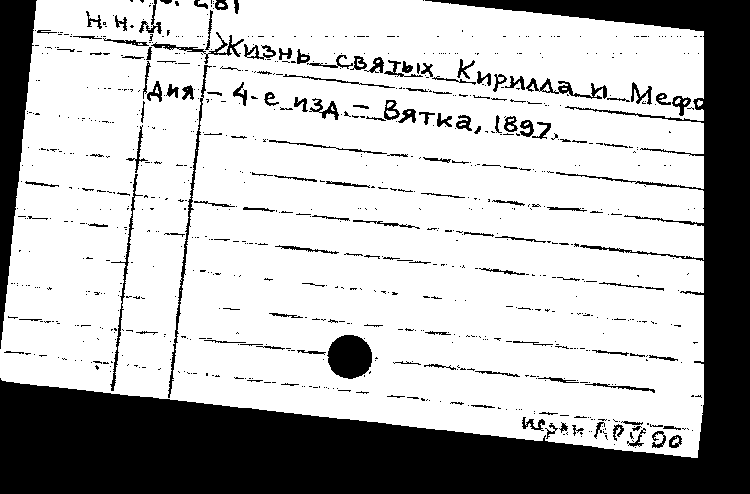 281
Н.Н.М.
Жизнь святых Кирилла и Мефо
дия – 4-е изд. – Вятка, 1897.